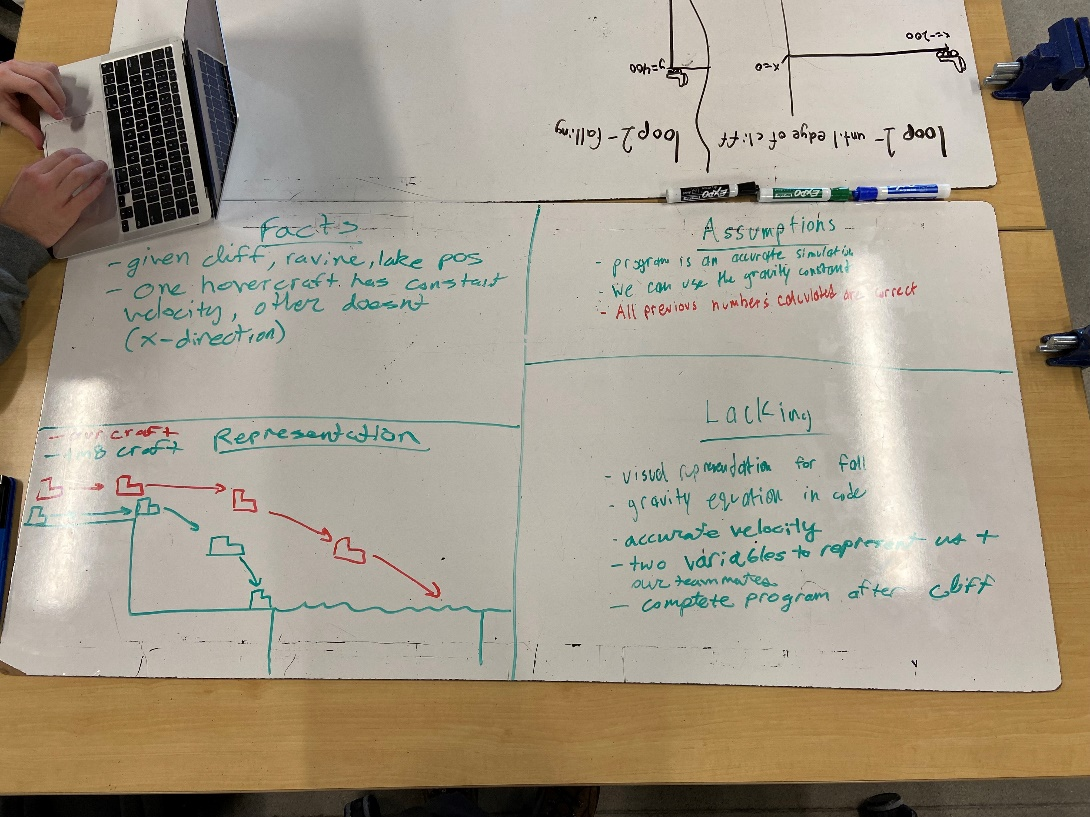 x=-200
x=0
y=400
loop 1 - until edge of cliff
loop 2 - falling
EXPO
EXPO
Facts
- given cliff, ravine, lake pos
- One hovercraft has constant
velocity, other doesnt
(x-direction)
Assumptions
- program is an accurate simulation
- We can use the gravity constant
- All previous numbers calculated are correct
- our craft
craft
Representation
Lacking
- visual representation for fall
- gravity equation in code
- accurate velocity
- two variables to represent us +
our teammates
- complete program after cliff